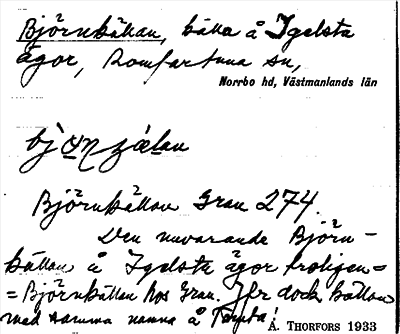 Björnkällan, källa å Igelsta
ägor, Romfartuna sn,
Norrbo hd, Västmanlands län
Björnkällan Grau 274.
Den nuvarande Björn-
källan å Igelsta ägor troligen =
= Björnkällan hos Grau. Jfr dock källan
med samma namn å Tomta!
Å. THORFORS 1933